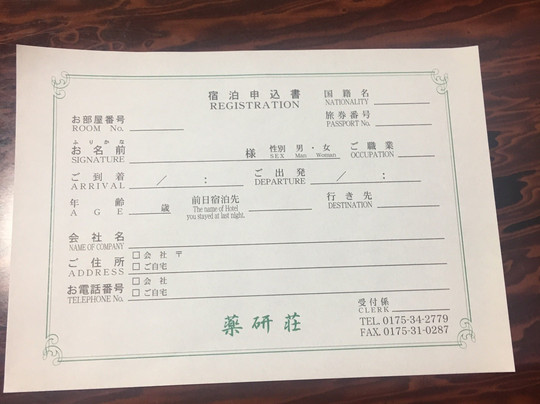 宿泊申込書 国籍名
REGISTRATION NATIONALITY
お部屋番号 旅券番号
ROOM No. PASSPORT No.
ふりがな
お名前 様 性別 男・女 ご職業
SIGNATURE SEX Man Woman OCCUPATION
ご到着 / : ご出発 / :
ARRIVAL DEPARTURE
年齢 歳 前日宿泊先 行き先
AGE The name of Hotel DESTINATION
you stayed at last night.
会社名
NAME OF COMPANY
ご住所 □会社 〒
ADDRESS □ご自宅
お電話番号 □会社
TELEPHONE No. □ご自宅
受付係
CLERK
薬研荘 TEL. 0175-34-2779
FAX. 0175-31-0287